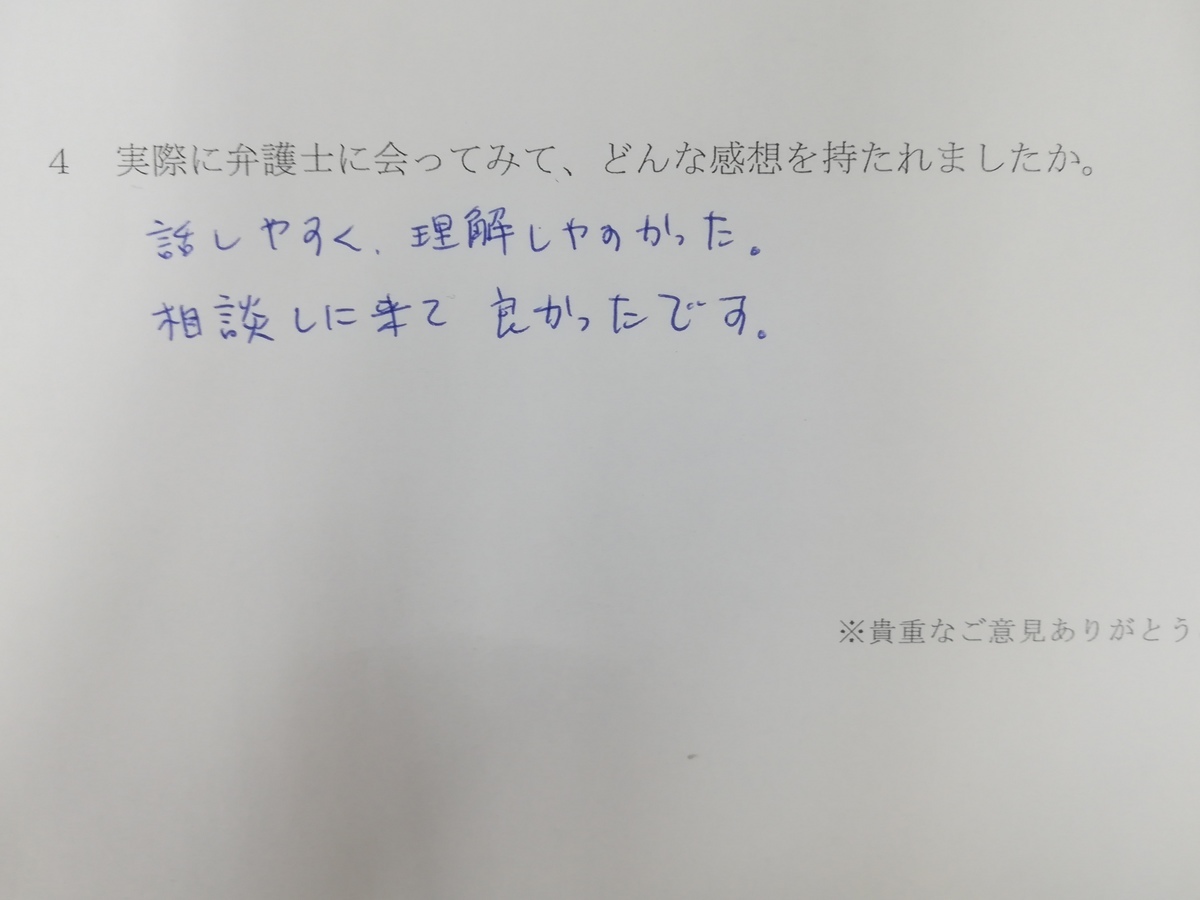 4 実際に弁護士に会ってみて、どんな感想を持たれましたか。
話しやすく、理解しやすかった。
相談しに来て 良かったです。
※貴重なご意見ありがとう